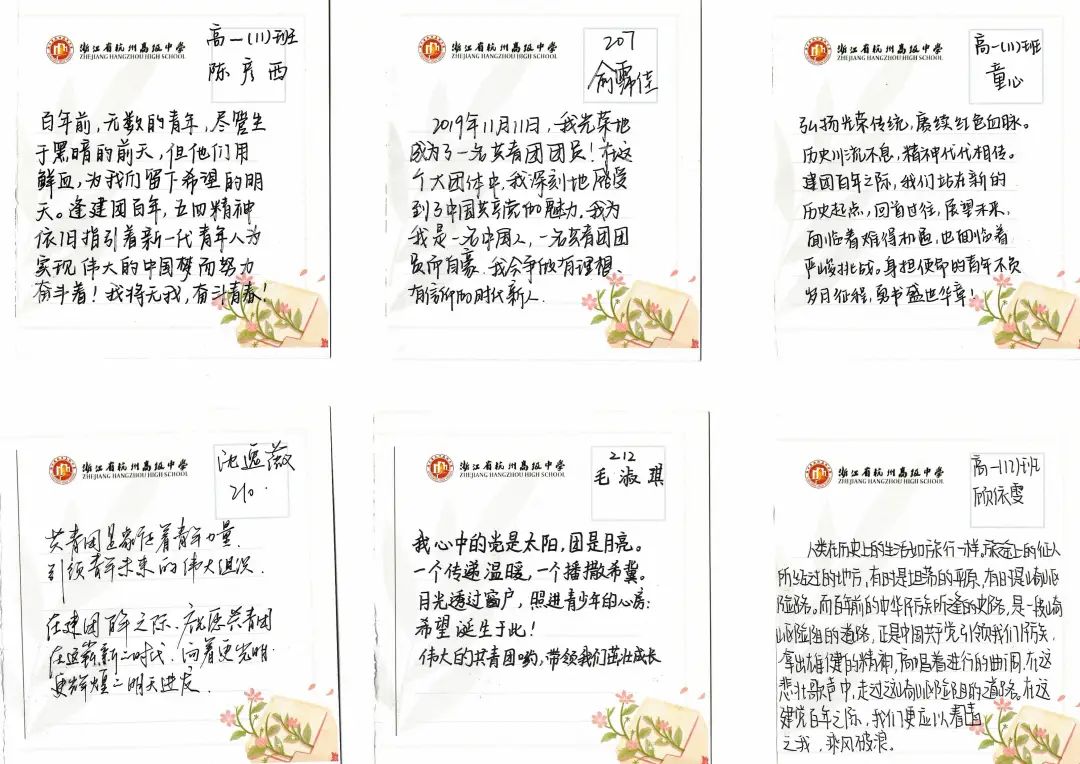 浙江省杭州高级中学
ZHEJIANG HANGZHOU HIGH SCHOOL
高一(11)班
陈彦西
百年前，无数的青年，尽管生
于黑暗的前天，但他们用
鲜血，为我们留下希望的明
天。逢建团百年，五四精神
依旧指引着新一代青年人为
实现伟大的中国梦而努力
奋斗着！我将无我，奋斗青春！
浙江省杭州高级中学
ZHEJIANG HANGZHOU HIGH SCHOOL
207
俞霈佳
2019年11月11日，我光荣地
成为了一名共青团团员！在这
个大团体中，我深刻地感受
到了中国共青团的魅力。我为
我是一名中国人，一名共青团团
员而自豪。我会争做有理想、
有信仰的时代新人。
浙江省杭州高级中学
ZHEJIANG HANGZHOU HIGH SCHOOL
高一(11)班
童心
弘扬光荣传统，赓续红色血脉。
历史川流不息，精神代代相传。
建团百年之际，我们站在新的
历史起点，回首过往，展望未来，
面临着难得机遇，也面临着
严峻挑战。身担使命的青年不负
岁月征程，勇书盛世华章！
浙江省杭州高级中学
ZHEJIANG HANGZHOU HIGH SCHOOL
沈逸薇
210.
共青团是象征着青年力量，
引领青年未来的伟大组织.
在建团百年之际，愿共青团
在这崭新之时代，向着更光明
更辉煌之明天进发.
浙江省杭州高级中学
ZHEJIANG HANGZHOU HIGH SCHOOL
212
毛淑琪
我心中的党是太阳，团是月亮。
一个传递温暖，一个播撒希冀。
月光透过窗户，照进青少年的心房：
希望诞生于此！
伟大的共青团哟，带领我们茁壮成长
浙江省杭州高级中学
ZHEJIANG HANGZHOU HIGH SCHOOL
高一(12)班
顾依雯
人类在历史上的生活如旅行一样。旅途上的征人
所经过的地方，有时是坦荡的平原，有时是崎岖
险路。而百年前的中华民族所逢的史路，是一段崎
岖险阻的道路，正是中国共产党引领我们民族，
拿出雄健的精神，高唱着进行的曲调，在这
悲壮歌声中，走过这崎岖险阻的道路。在这
建党百年之际，我们更应以青春
之我，乘风破浪。